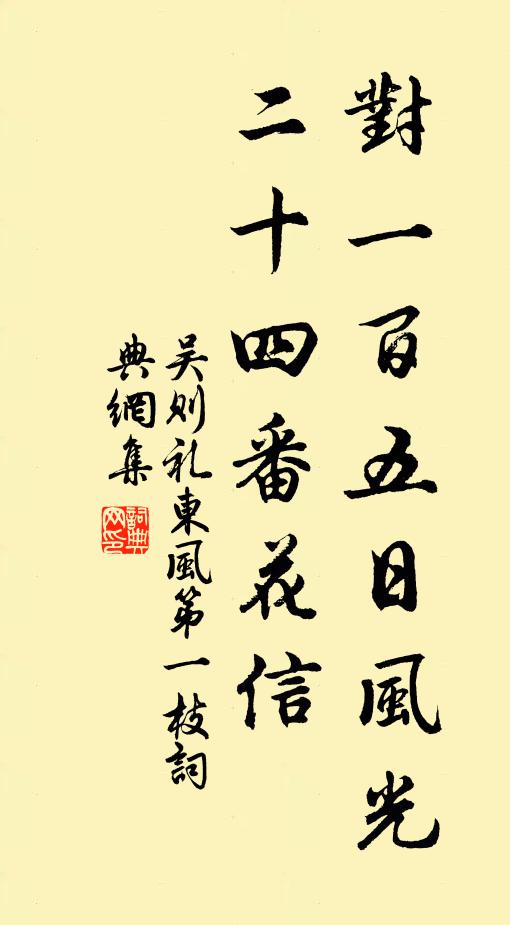 對一百五日風光
二十四番花信
吴则礼東風第一枝詞
典網集
詞典
网印